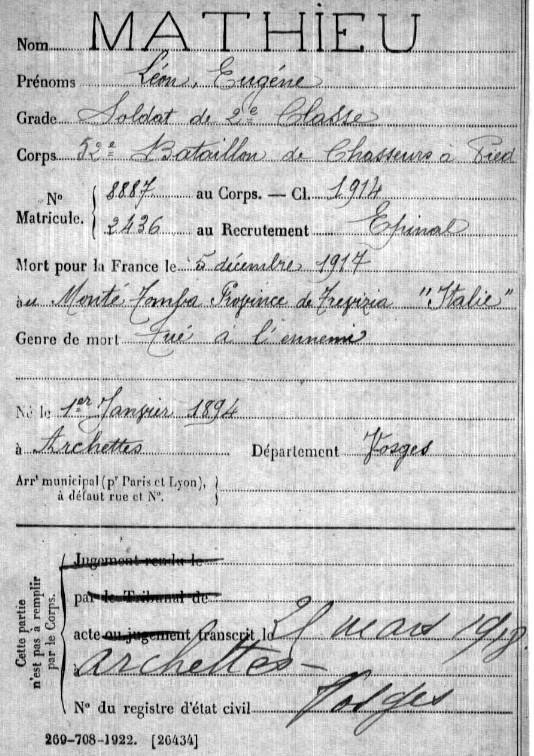 Nom MATHIEU
Prénoms Léon, Eugéne
Grade Soldat de 2e Classe
Corps 52e Bataillon de Chasseurs à Pied
No Matricule. { 8887 au Corps. — Cl. 1914
2436 au Recrutement Epinal
Mort pour la France le 5 décembre 1917
au Monté Tomba Province de Trevizia "Italie"
Genre de mort Tué à l'ennemi
Né le 1er Janvier 1894
à Archettes Département Vosges
Arrt municipal (pr Paris et Lyon), }
à défaut rue et No.
Cette partie
n'est pas à remplir
par le Corps.
Jugement rendu le
par le Tribunal de
acte ou jugement transcrit le 21 mars 1918
Archettes -
Vosges
No du registre d'état civil
269-708-1922. [26434]